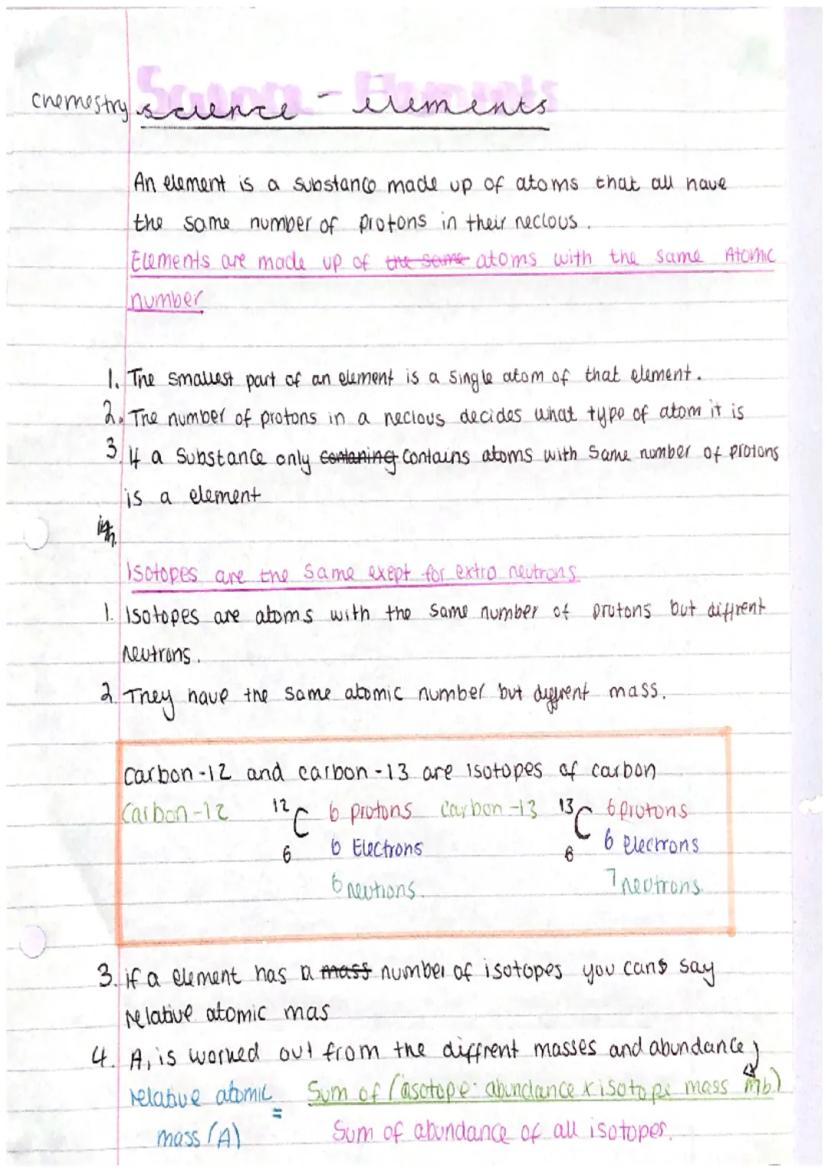 Science - Elements
chemestry science - elements
An element is a substance made up of atoms that all have
the same number of protons in their neclous.
Elements are made up of the same atoms with the same Atomic
number
1. The smallest part of an element is a single atom of that element.
2. The number of protons in a neclous decides what type of atom it is
3. If a substance only contaning contains atoms with same number of protons
is a element
Isotopes are the same exept for extra neutrons
1. Isotopes are atoms with the same number of protons but diffrent
neutrons.
2. They have the same atomic number but diffrent mass.
carbon-12 and carbon-13 are isotopes of carbon
Carbon-12 12 C 6 protons carbon-13 13 C 6 protons
6 6 Electrons 6 6 Electrons
6 neutrons. 7 neutrons.
3. if a element has a mass number of isotopes you can say
relative atomic mas
4. A, is worked out from the diffrent masses and abundance
relative atomic = Sum of (isotope abundance x isotope mass
mass (A) Sum of abundance of all isotopes.